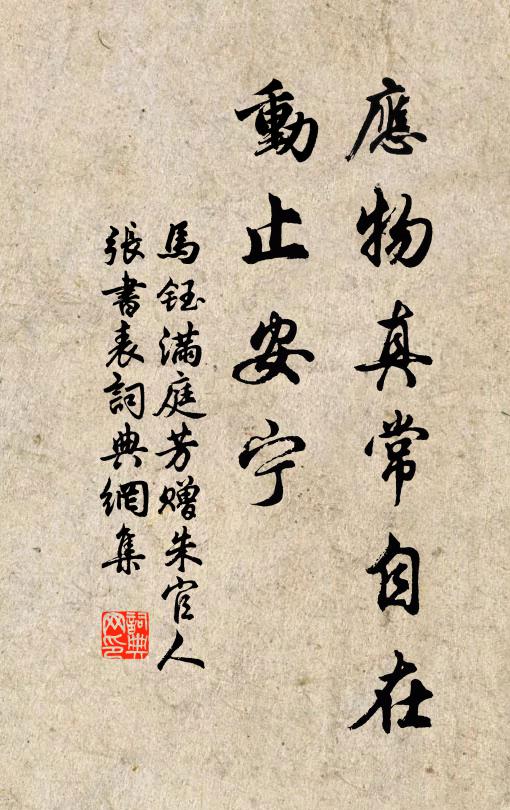 應物真常自在
動止安宁
馬鈺滿庭芳贈朱官人
張書表詞典網集
詞典网印